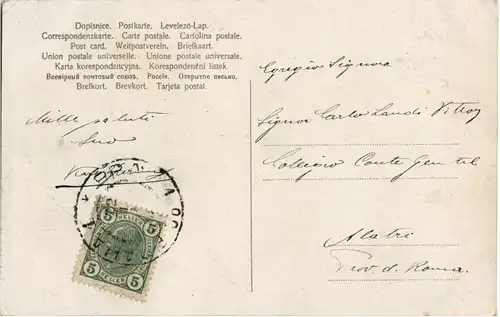 Dopisnice. Postkarte. Levelező-Lap.
Correspondenzkarte. Carte postale. Cartolina postale.
Post card. Weltpostverein. Briefkaart.
Union postale universelle. Unione postale universale.
Karta korespondencyjna. Korespondenční listek.
Всемірный почтовый союзъ. Россія. Открытое письмо.
Brefkort. Brevkort. Tarjeta postal.
Mille saluti
Suo
5 5
HELLER HELLER
5 5
Egregio Signore
Signor Carlo Landi
Collegio Conte Gentile
Alatri
Prov. d. Roma.